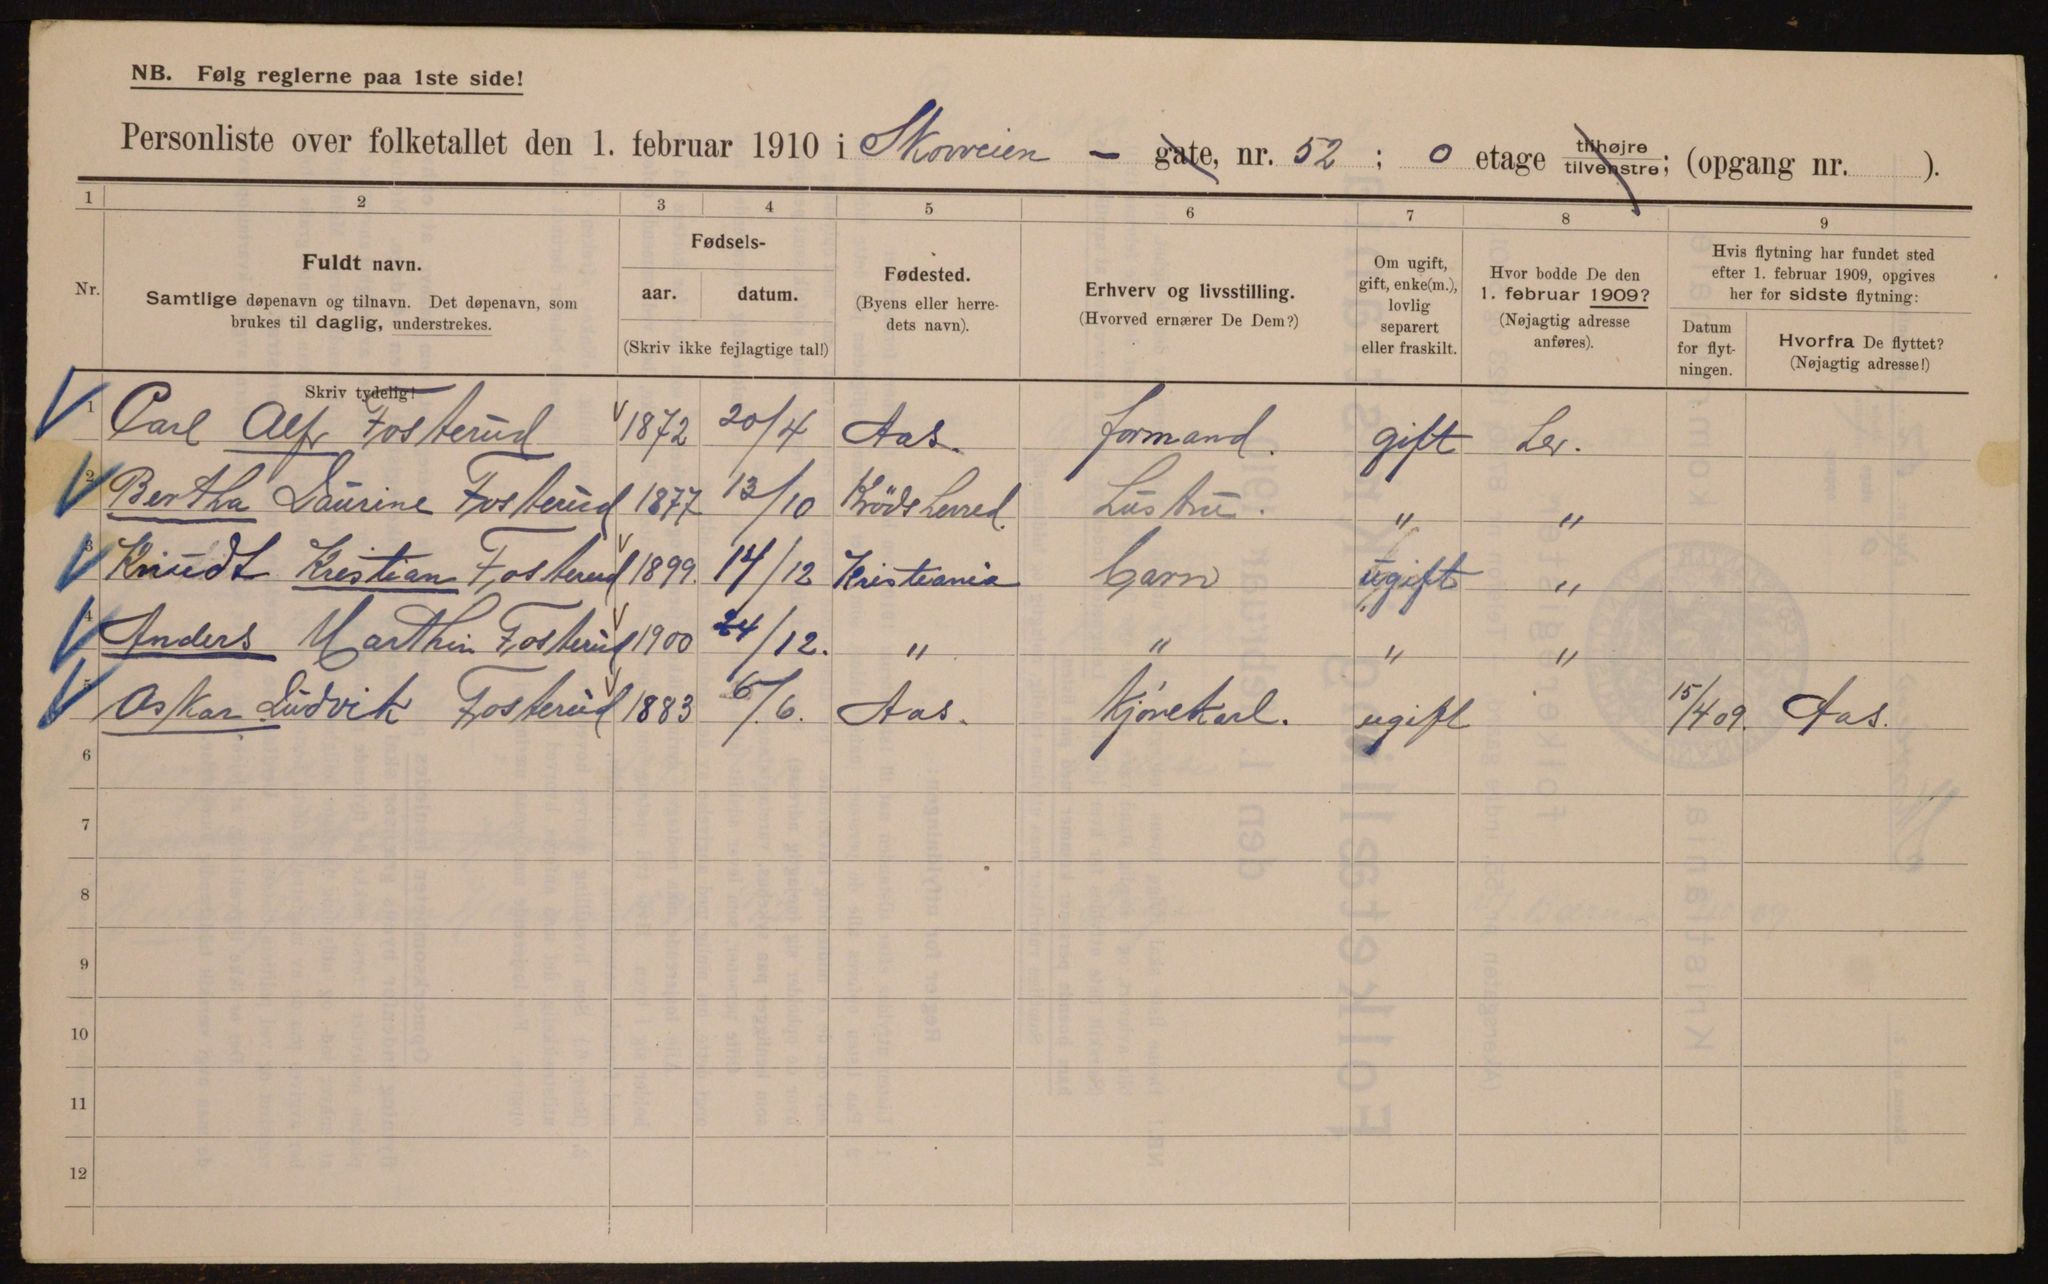 NB. Følg reglerne paa 1ste side!
Personliste over folketallet den 1. februar 1910 i Skovveien - gate, nr. 52 ; 0 etage tilhøjre tilvenstre; (opgang nr. ).
1 2 3 4 5 6 7 8 9
Nr.
Fuldt navn.
Samtlige døpenavn og tilnavn. Det døpenavn, som
brukes til daglig, understrekes.
Skriv tydelig!
Fødsels-
aar. datum.
(Skriv ikke fejlagtige tal!)
Fødested.
(Byens eller herre-
dets navn).
Erhverv og livsstilling.
(Hvorved ernærer De Dem?)
Om ugift,
gift, enke(m.),
lovlig
separert
eller fraskilt.
Hvor bodde De den
1. februar 1909?
(Nøjagtig adresse
anføres).
Hvis flytning har fundet sted
efter 1. februar 1909, opgives
her for sidste flytning:
Datum
for flyt-
ningen.
Hvorfra De flyttet?
(Nøjagtig adresse!)
1 Carl Alfr Fosterud 1872 20/4 Aas. formand. gift Her.
2 Bertha Laurine Fosterud 1877 13/10 Krödsherred. Hustru. " "
3 Knudt Kristian Fosterud 1899. 14/12 Kristiania Barn ugift "
4 Anders Marthin Fosterud 1900 24/12. " " " "
5 Oskar Ludvik Fosterud 1883 6/6. Aas. Kjørekarl. ugift 15/4 09. Aas.
6
7
8
9
10
11
12